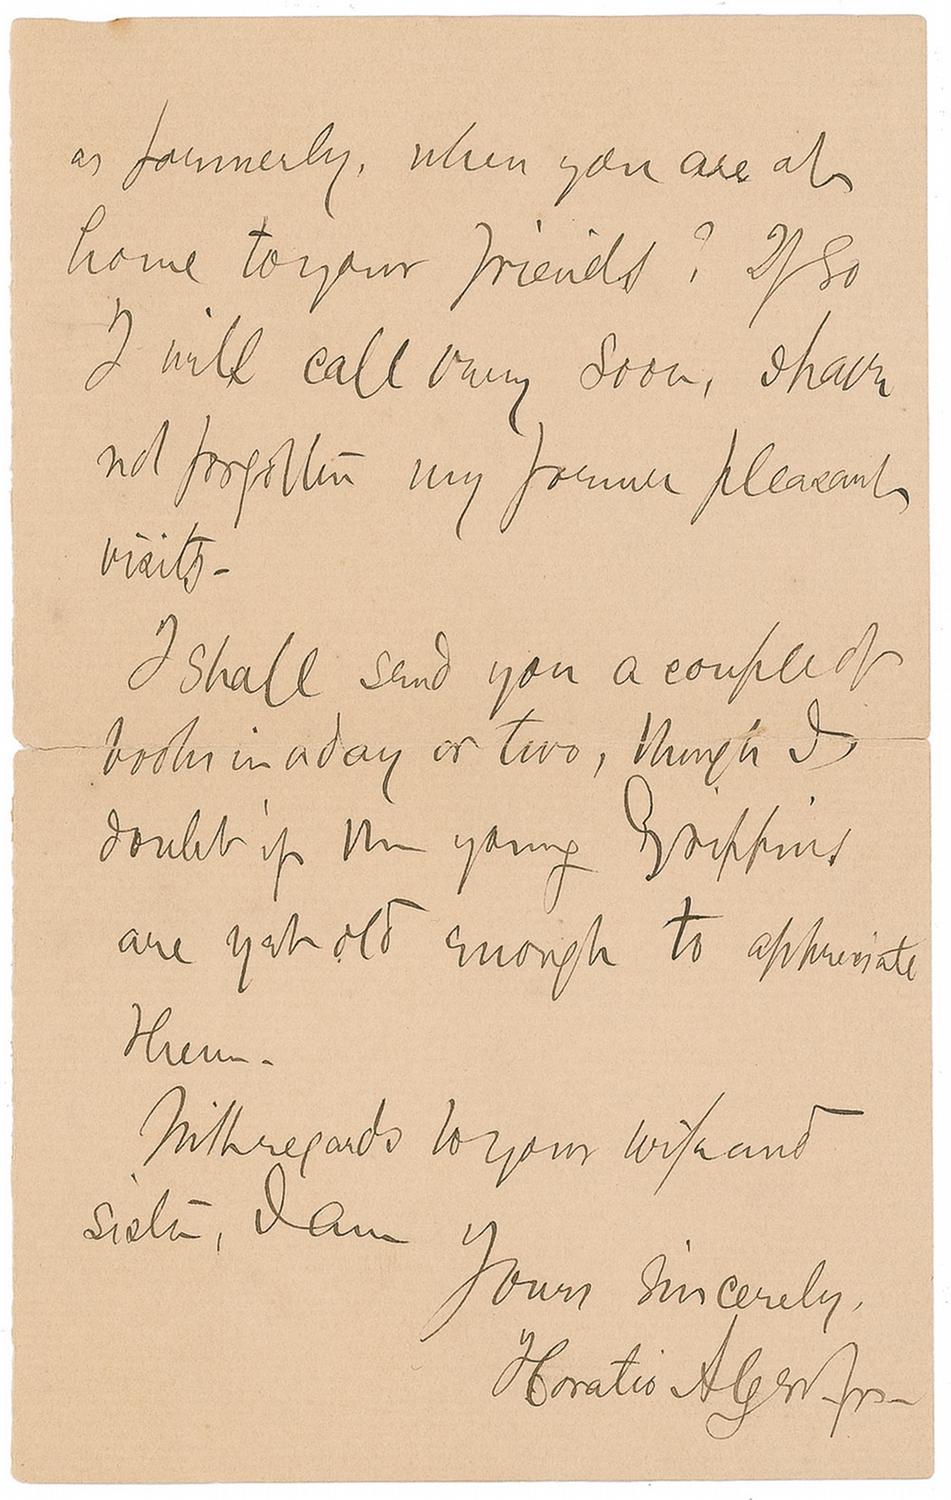 as formerly, when you are at
home to your friends? If so
I will call very soon, I have
not forgotten my former pleasant
visits-
I shall send you a couple of
books in a day or two, though I
doubt if the young Griffins
are yet old enough to appreciate
them-
With regards to your wife and
sister, I am
Yours sincerely,
Horatio Alger Jr.